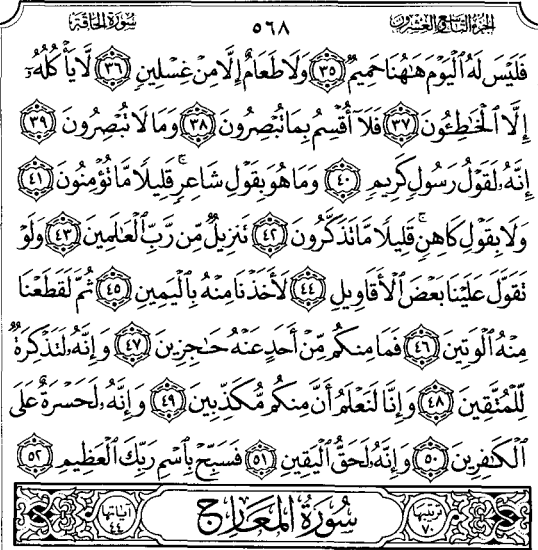 سُورَةُ الْحَاقَّةِ ٥٦٨ الجُزْءُ التَّاسِعُ وَالعِشْرُونَ
فَلَيْسَ لَهُ ٱلْيَوْمَ هَٰهُنَا حَمِيمٌ ٣٥ وَلَا طَعَامٌ إِلَّا مِنْ غِسْلِينٍ ٣٦ لَّا يَأْكُلُهُۥٓ
إِلَّا ٱلْخَٰطِـُٔونَ ٣٧ فَلَآ أُقْسِمُ بِمَا تُبْصِرُونَ ٣٨ وَمَا لَا تُبْصِرُونَ ٣٩
إِنَّهُۥ لَقَوْلُ رَسُولٍ كَرِيمٍ ٤٠ وَمَا هُوَ بِقَوْلِ شَاعِرٍ ۚ قَلِيلًا مَّا تُؤْمِنُونَ ٤١
وَلَا بِقَوْلِ كَاهِنٍ ۚ قَلِيلًا مَّا تَذَكَّرُونَ ٤٢ تَنزِيلٌ مِّن رَّبِّ ٱلْعَٰلَمِينَ ٤٣ وَلَوْ
تَقَوَّلَ عَلَيْنَا بَعْضَ ٱلْأَقَاوِيلِ ٤٤ لَأَخَذْنَا مِنْهُ بِٱلْيَمِينِ ٤٥ ثُمَّ لَقَطَعْنَا
مِنْهُ ٱلْوَتِينَ ٤٦ فَمَا مِنكُم مِّنْ أَحَدٍ عَنْهُ حَٰجِزِينَ ٤٧ وَإِنَّهُۥ لَتَذْكِرَةٌ
لِّلْمُتَّقِينَ ٤٨ وَإِنَّا لَنَعْلَمُ أَنَّ مِنكُم مُّكَذِّبِينَ ٤٩ وَإِنَّهُۥ لَحَسْرَةٌ عَلَى
ٱلْكَٰفِرِينَ ٥٠ وَإِنَّهُۥ لَحَقُّ ٱلْيَقِينِ ٥١ فَسَبِّحْ بِٱسْمِ رَبِّكَ ٱلْعَظِيمِ ٥٢
ترتيبها ٧٠ سُورَةُ المَعَارِجِ آياتها ٤٤